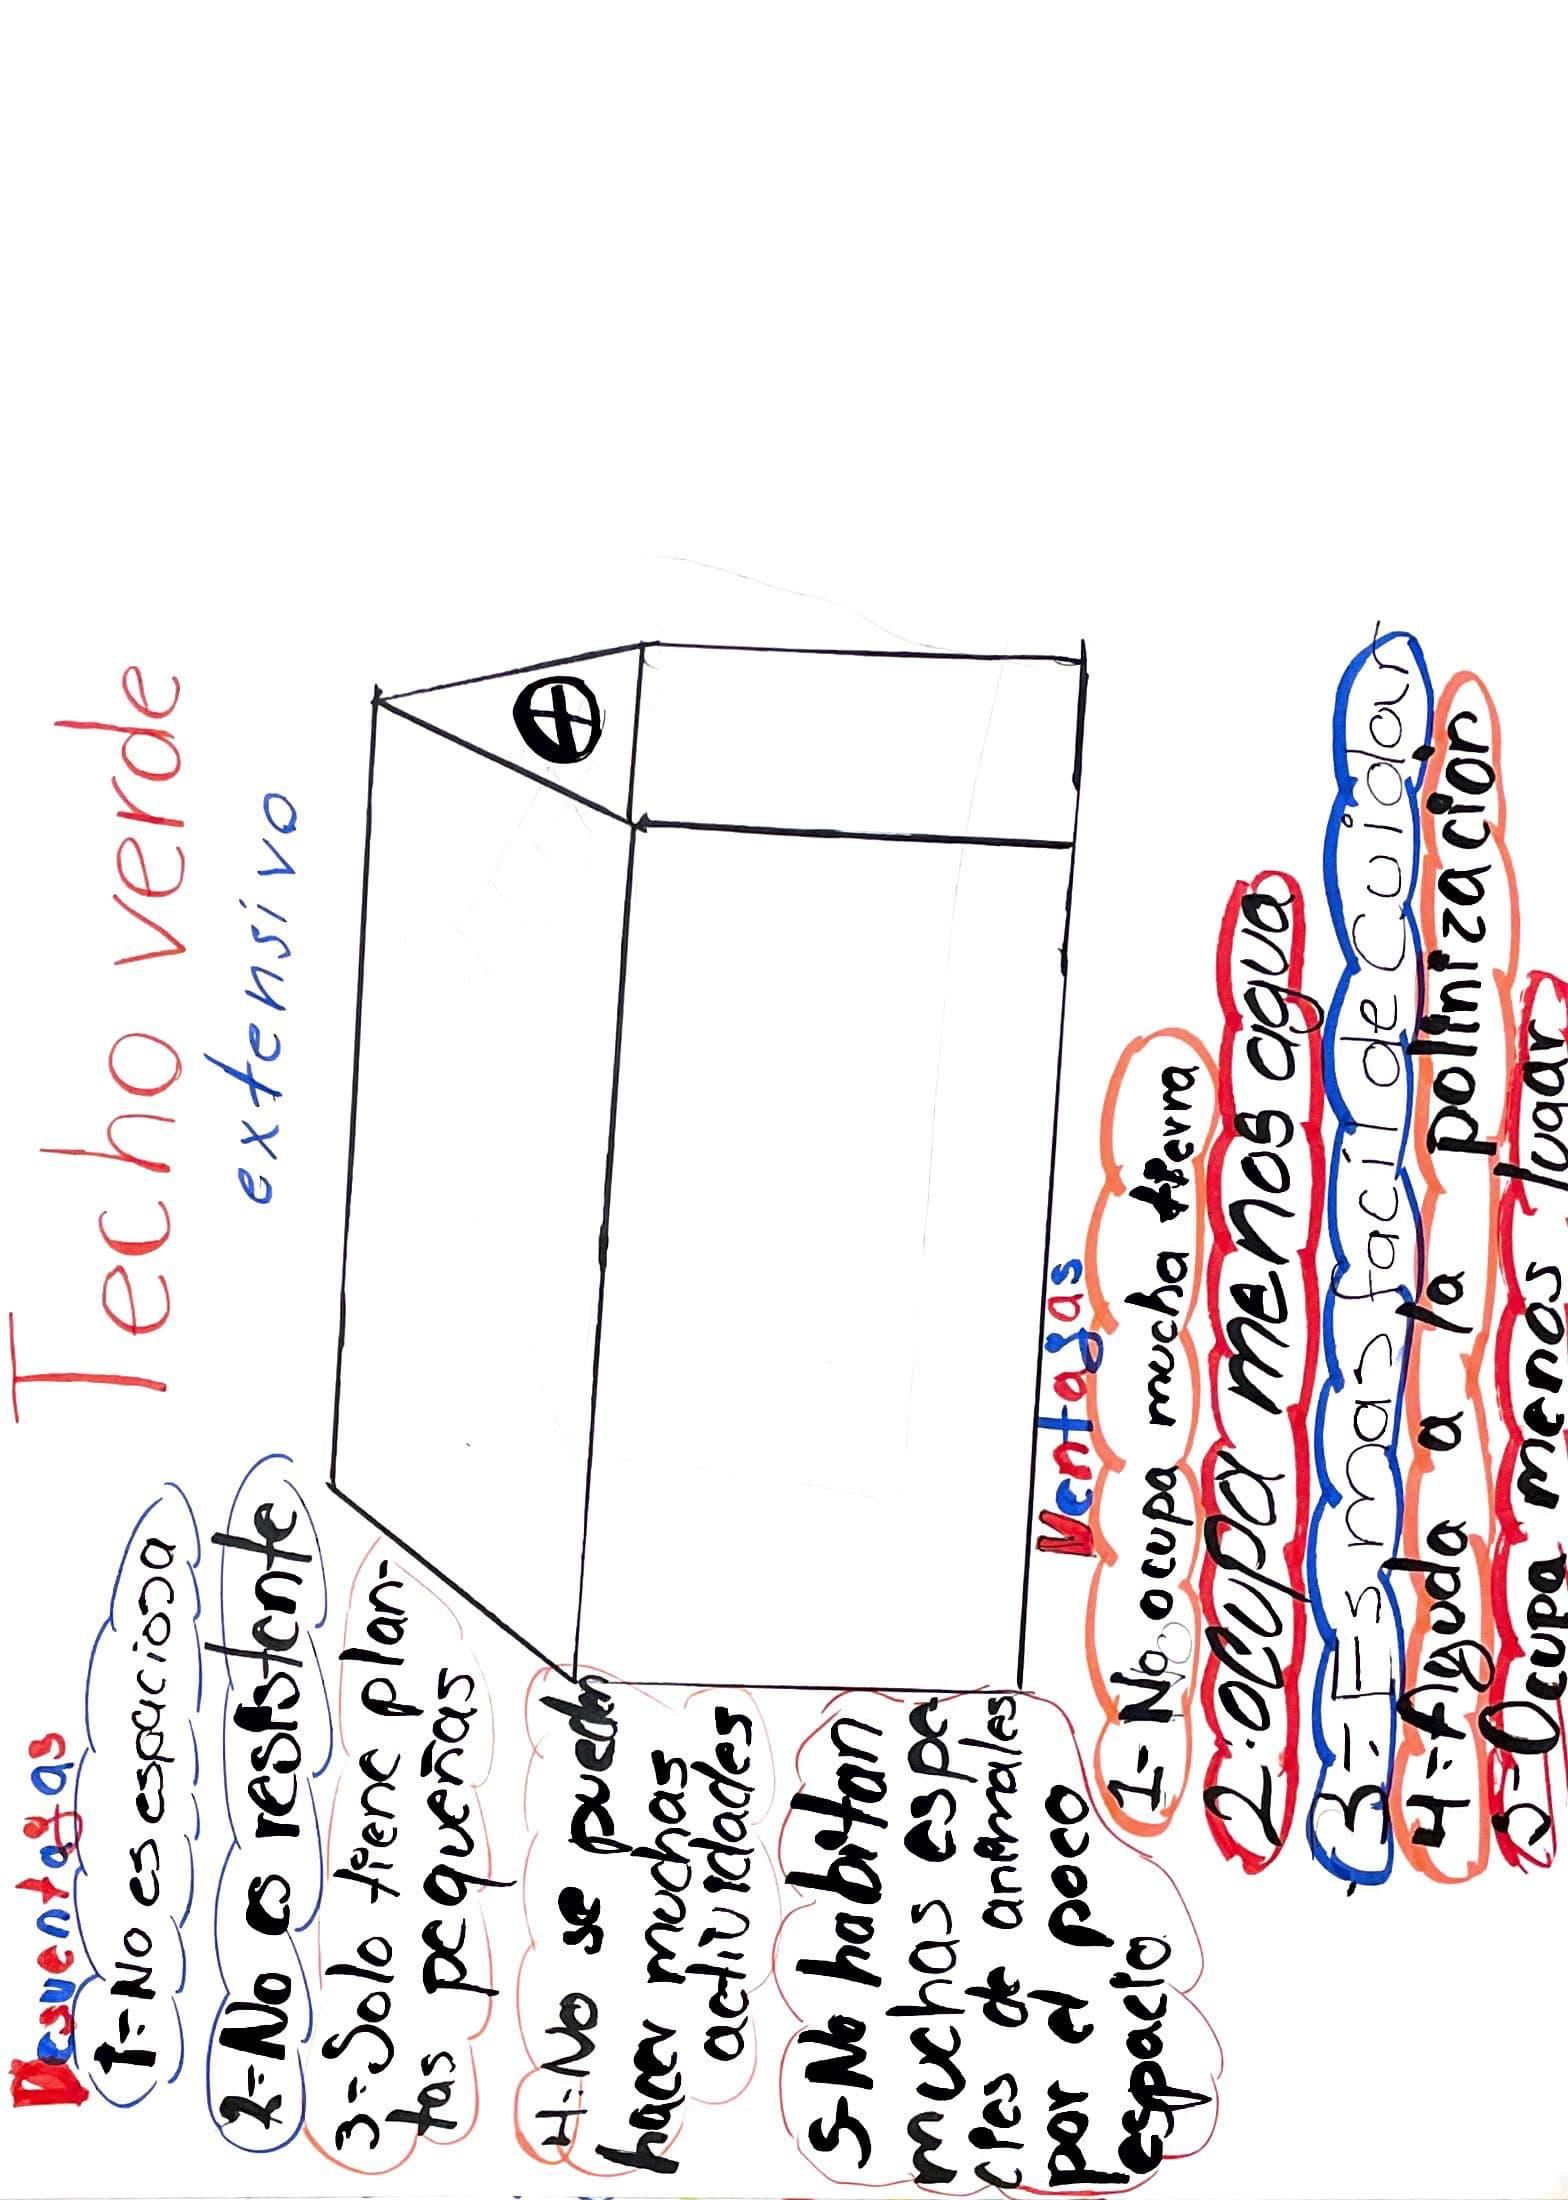 Techo verde
extensivo
Desventajas
1=No es espaciosa
2=No es resistente
3=Solo tiene plan-
tas pequeñas
4=No se pueden
hacer muchas
actividades
5-No habitan
muchas espe
cies de animales
por el poco
espacio
Ventajas
1=No ocupa mucha tierra
2=ocupa menos agua
3=Es mas facil de Cuidar
4=Ayuda a la polinizacion
5=Ocupa menos lugar